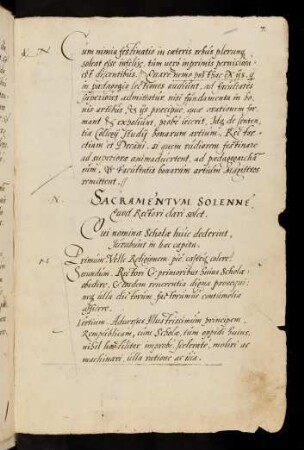 Cum nimia festinatio in cæteris rebus plerunq;
soleat esse infelix, tum uerò inprimis perniciosa
est discentibus. Quare nemo post hac ex ijs, q
in pædagogio lectiones audiunt, ad facultates
superiores admittatur nisi fundamenta in bonis
artibus & ijs præcipuè, quæ orationem formant
& expoliunt, probè iecerit, Idq; de sententia
Collegij Studij bonarum artium. Rectores
etiam et Decani, si quem rudiorem festinare
ad superiora animaduerterint, ad pædagogarcham,
& Facultatis bonarum artium Magistros
remittent.
SACRAMENTVM SOLENNE
Quod Rectori dari solet.
Qui nomina Scholæ huic dederint,
Iurabunt in hæc capita.
Primum Velle Religionem piè, castéq; colere.
Secundum. Rectori & primoribus huius Scholæ
obedire, & eosdem reuerentia digna prosequi:
neq; ulla dictorum factorumue contumelia
afficere.
Tertium. Aduersus Illustrissimum principem
Rempublicam, cum Scholæ, tum oppidi huius,
nihil hostiliter improbè, scelerate, moliri ac
machinari ulla ratione